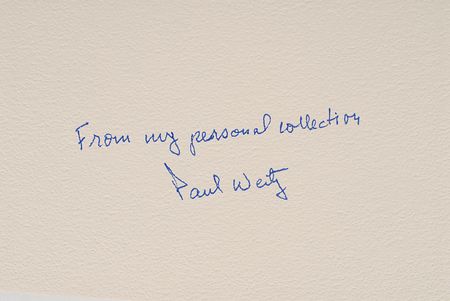 From my personal collection
Paul Weitz